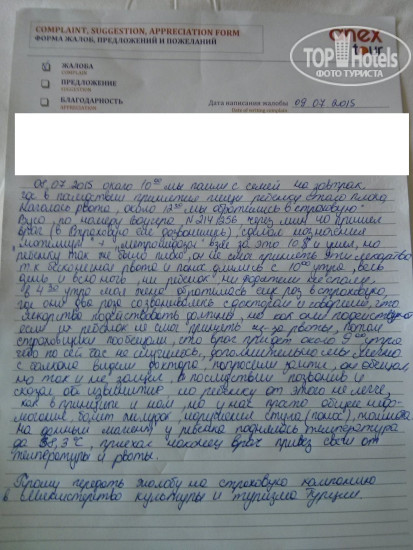 COMPLAINT, SUGGESTION, APPRECIATION FORM
ФОРМА ЖАЛОБ, ПРЕДЛОЖЕНИЙ И ПОЖЕЛАНИЙ
anex tour
TopHotels
ФОТО ТУРИСТА
ЖАЛОБА
COMPLAIN
ПРЕДЛОЖЕНИЕ
SUGGESTION
БЛАГОДАРНОСТЬ
APPRECIATION
Дата написания жалобы 09.07.2015
Date of writing complain
08.07.2015 около 10⁰⁰ мы пошли с семей на завтрак
где в последствии принятие пищи ребенку стало плохо
Началась рвота, около 12 мы обратились в страховую
по номеру ваучера, N 2141256, через мин 40 пришел
врач (в страховую еле дозвонились) сделал назначения
"мотилиум" + "метронидазол" взяв за это 10$ и ушел, но
ребенку так же было плохо, он не смог принять эти лекарства
т.к бесконечная рвота и понос длились с 10⁰⁰ утра, весь
день и всю ночь, ни ребенок, ни родители не спали
В 4³⁰ утра моя жена обратилась еще раз в страховую,
где они два раза созванивались с доктором и говорили, что
лекарство подействовать должно, но как они подействуют
если их ребенок не смог принять из-за рвоты, потом
страховщики пообещали, что врач придет около 9⁰⁰ утра
чего по сей час не случилось, дополнительно мы лично
с балкона видели доктора, попросили зайти, он обещал
но так и не зашел, в последствии позвонив и
сказал об извините, но ребенку от этого не легче,
как в принципе и нам, но у нас просто общее недо-
могание, болит желудок, нарушения стула (понос), тошнота
на данный момент у ребенка поднялась температура
до 38,3°C, приехал наконец врач привез свечи от
температуры и рвоты.
Прошу передать жалобу на страховую компанию
в Министерство культуры и туризма Турции.